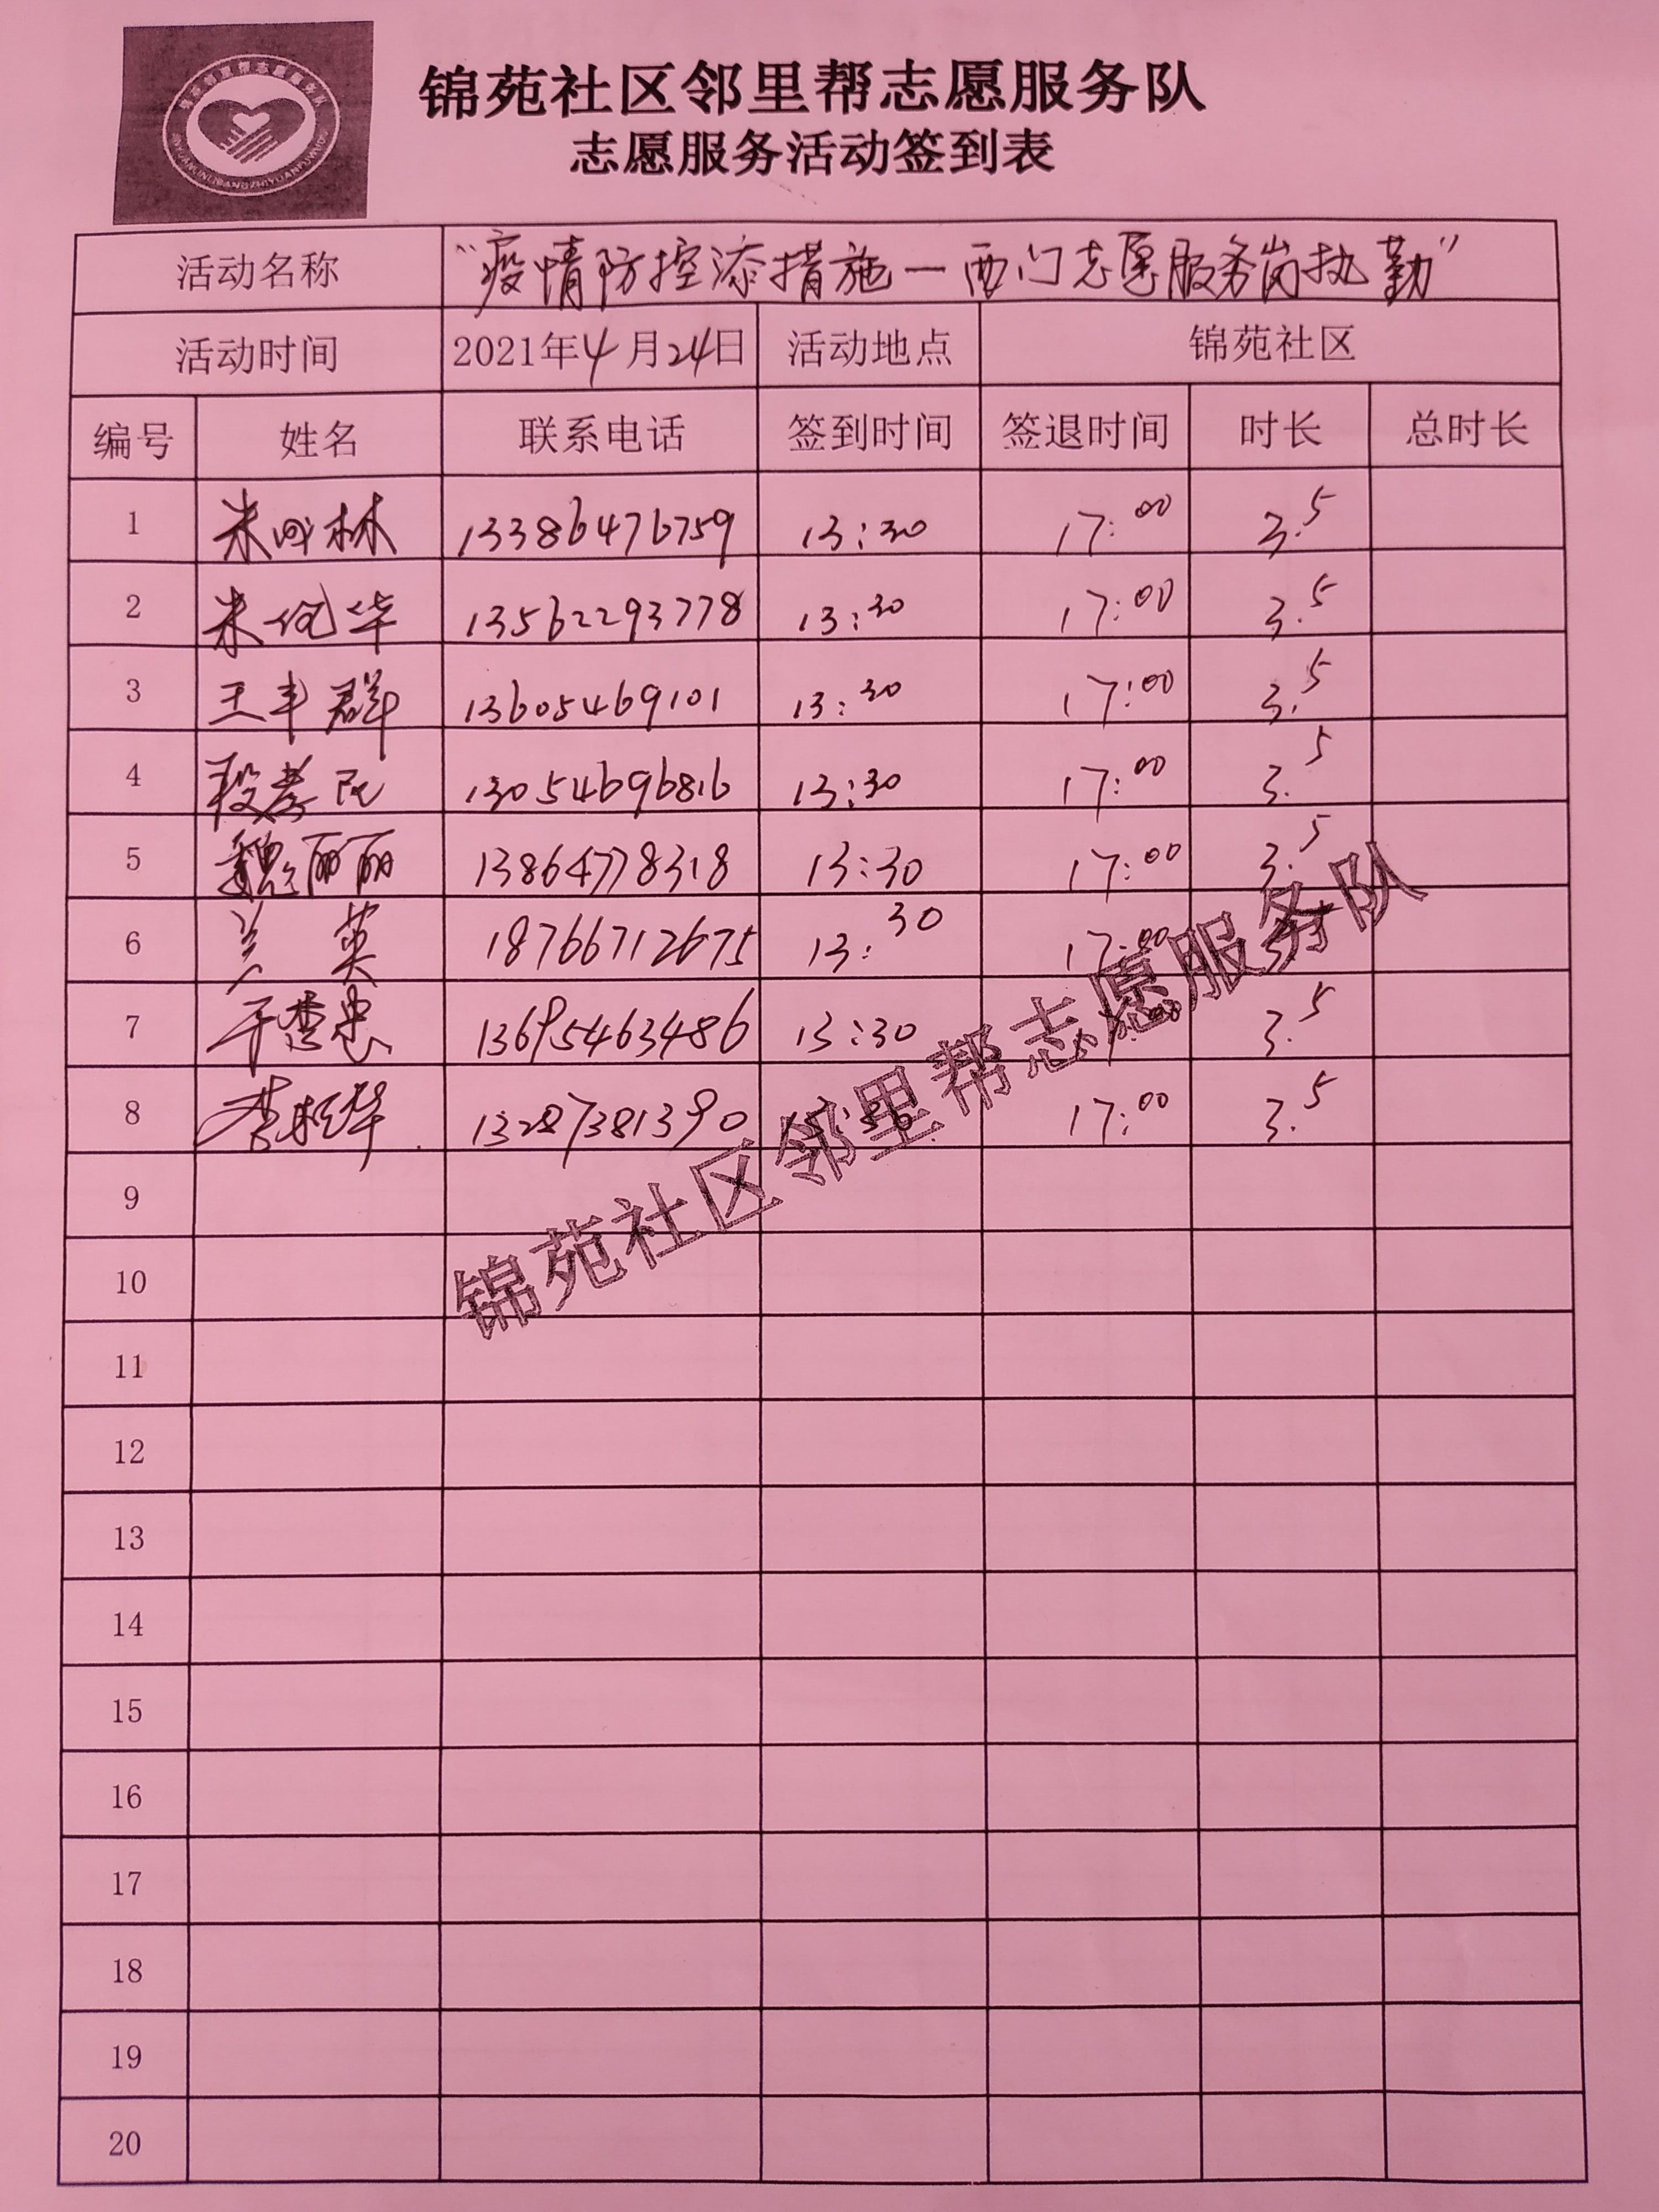 锦苑社区邻里帮志愿服务队
志愿服务活动签到表
活动名称 “疫情防控添措施一西门志愿服务岗执勤”
活动时间 2021年4月24日 活动地点 锦苑社区
编号 姓名 联系电话 签到时间 签退时间 时长 总时长
1 13386476759 13:30 17:00 3.5
2 华 13562293778 13:30 17:00 3.5
3 王丰群 13605469101 13:30 17:00 3.5
4 段孝民 13054696816 13:30 17:00 3.5
5 魏丽丽 13864778318 13:30 17:00 3.5
6 兰英 18766712675 13:30 17:00
7 13695463486 13:30 3.5
8 李 华 13287381390 17:00 3.5
9
10
11
12
13
14
15
16
17
18
19
20
锦苑社区邻里帮志愿服务队